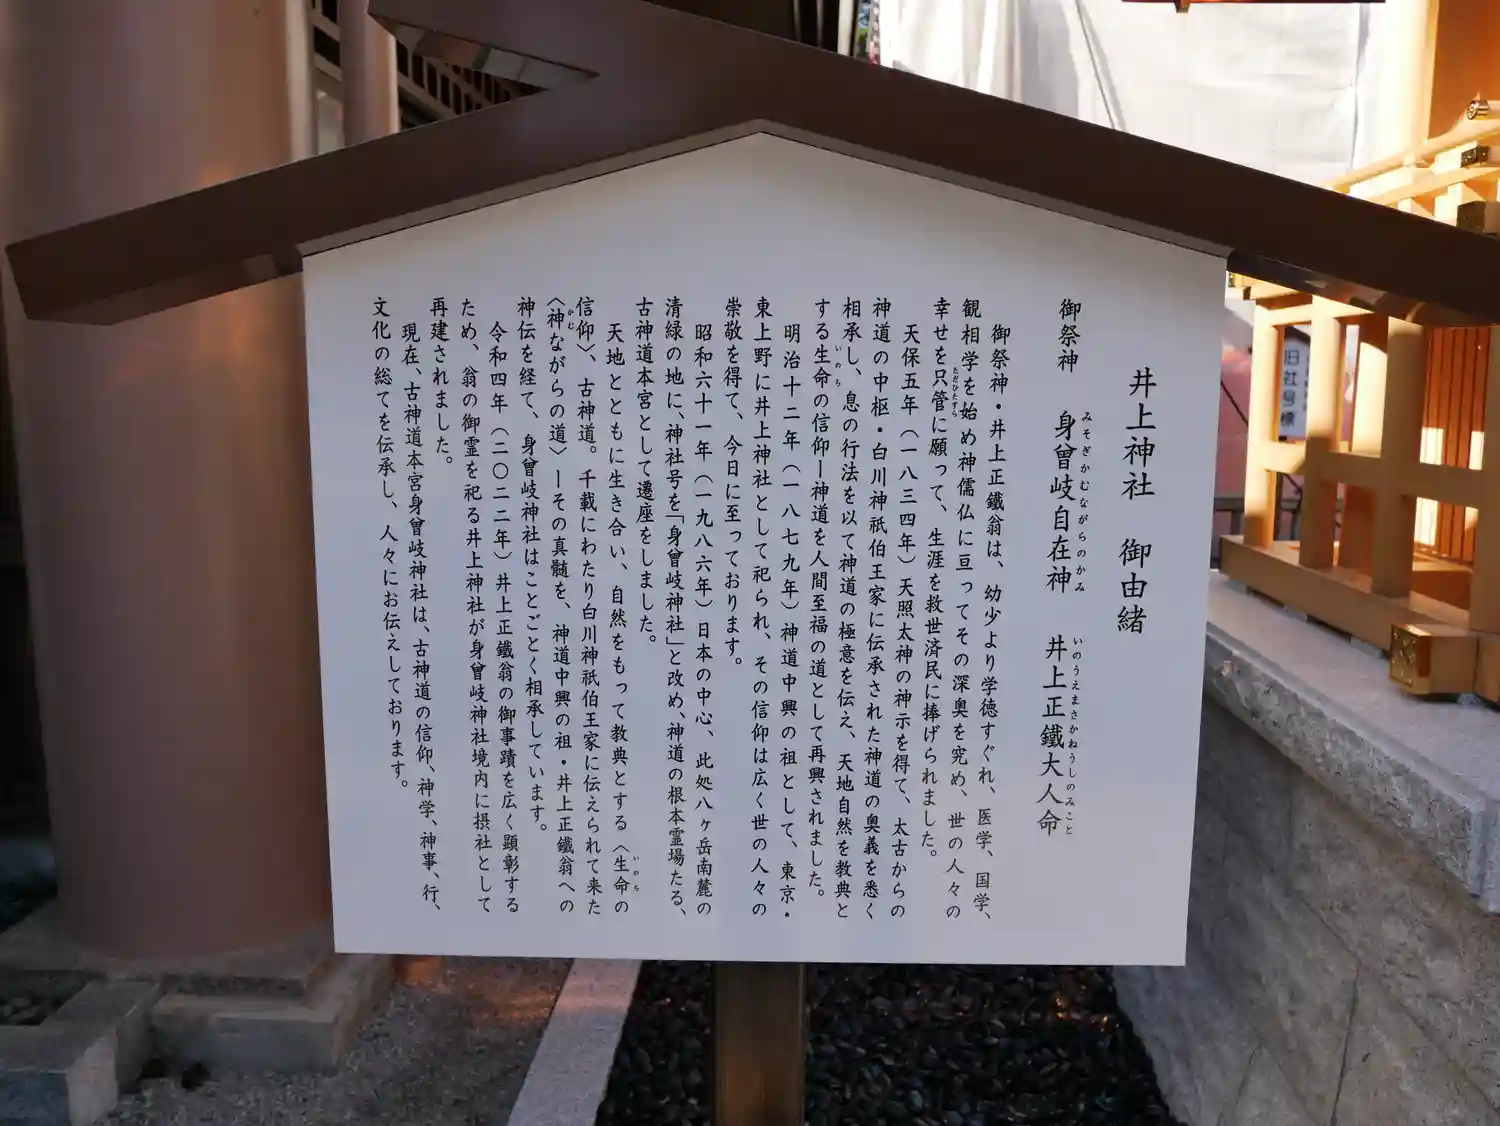 井上神社　御由緒
御祭神　身曾岐自在神　井上正鐵大人命
みそぎかむながらのかみ　いのうえまさかねうしのみこと
御祭神・井上正鐵翁は、幼少より学徳すぐれ、医学、国学、
観相学を始め神儒仏に亘ってその深奥を究め、世の人々の
幸せを只管に願って、生涯を救世済民に捧げられました。
ただひたすら
天保五年（一八三四年）天照太神の神示を得て、太古からの
神道の中枢・白川神祇伯王家に伝承された神道の奥義を悉く
相承し、息の行法を以て神道の極意を伝え、天地自然を教典と
する生命の信仰ー神道を人間至福の道として再興されました。
いのち
明治十二年（一八七九年）神道中興の祖として、東京・
東上野に井上神社として祀られ、その信仰は広く世の人々の
崇敬を得て、今日に至っております。
昭和六十一年（一九八六年）日本の中心、此処八ヶ岳南麓の
清緑の地に、神社号を「身曾岐神社」と改め、神道の根本霊場たる、
古神道本宮として遷座をしました。
天地とともに生き合い、自然をもって教典とする〈生命の
いのち
信仰〉、古神道。千載にわたり白川神祇伯王家に伝えられて来た
〈神ながらの道〉ーその真髄を、神道中興の祖・井上正鐵翁への
かむ
神伝を経て、身曾岐神社はことごとく相承しています。
令和四年（二〇二二年）井上正鐵翁の御事蹟を広く顕彰する
ため、翁の御霊を祀る井上神社が身曾岐神社境内に摂社として
再建されました。
現在、古神道本宮身曾岐神社は、古神道の信仰、神学、神事、行、
文化の総てを伝承し、人々にお伝えしております。
旧社号標